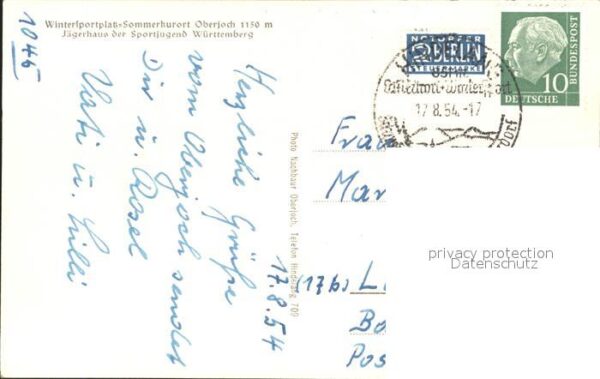 Wintersportplatz-Sommerkurort Oberjoch 1150 m
Jägerhaus der Sportjugend Württemberg
1045
17.8.54
Herzliche Grüße
vom Oberjoch sendet
Dir u. Rosel
Vati u. Lilli
Photo Nachbaur Oberjoch, Telefon Hindelang 709
NOTOPFER
2 BERLIN
STEUERMARKE
17.8.54.-17
10
DEUTSCHE
BUNDESPOST
Frau
Mar
(17b) L
Bo
Pos
privacy protection
Datenschutz